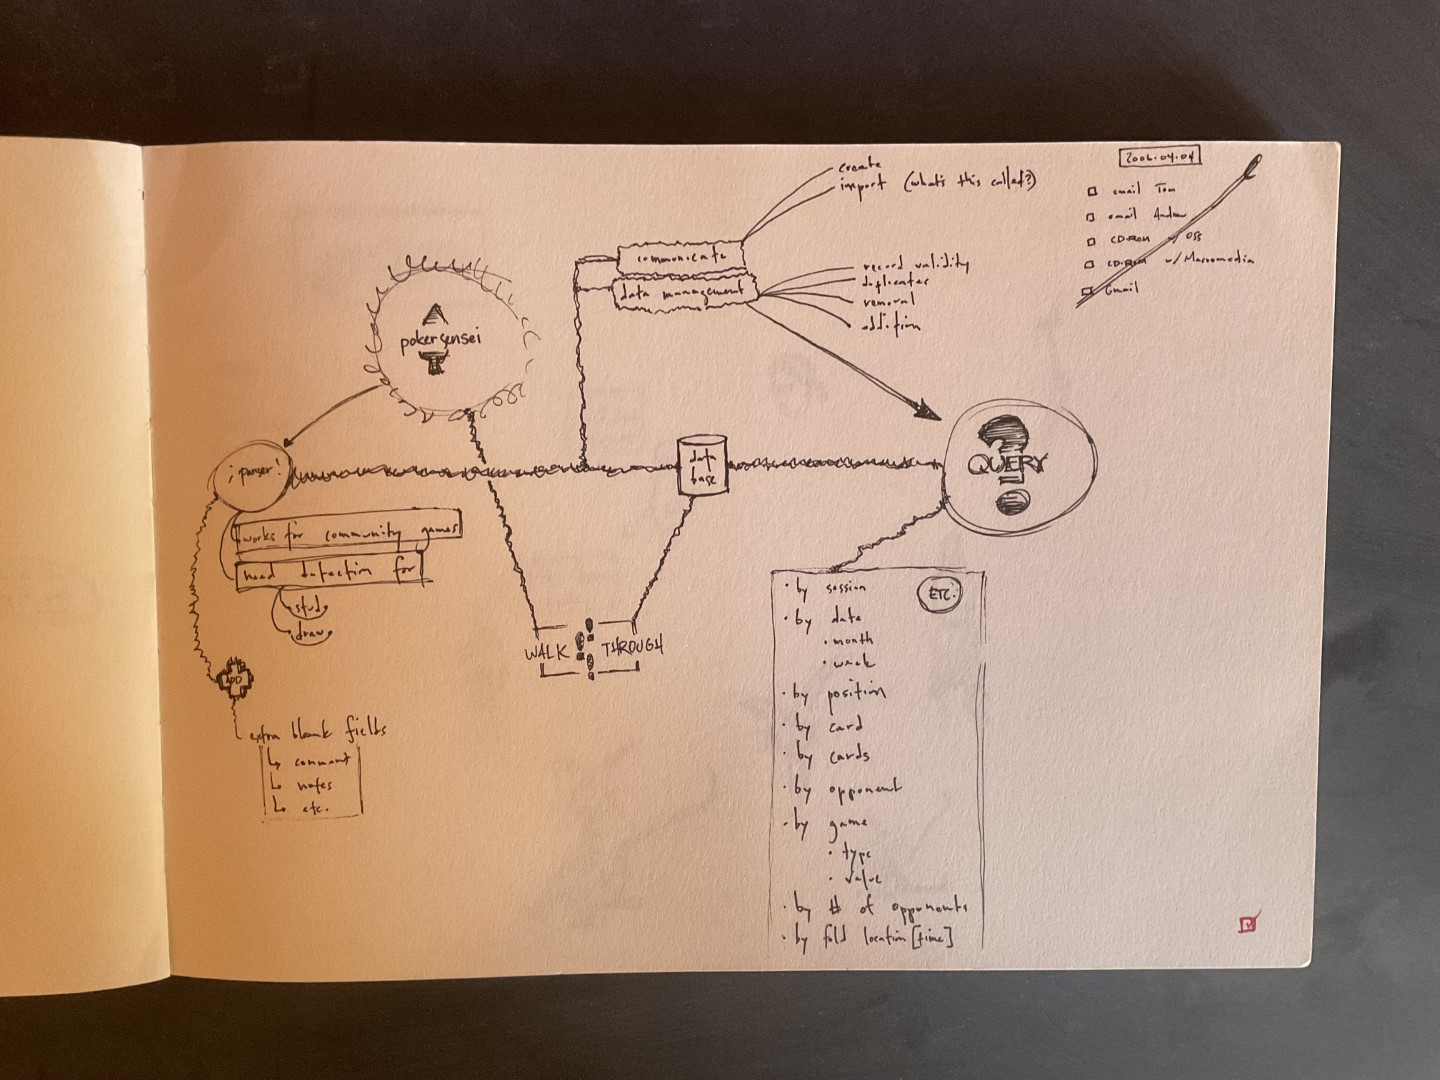 create
import (what's this called?)
2006.04.04
email Tom
email Andrew
CD-ROM w/ OSS
CD-ROM w/ Macromedia
Gmail
communicate
data management
record validity
duplicates
removal
addition
pokersensei
¡parser!
data
base
QUERY
works for community games
need detection for
stud
draw
WALK THROUGH
ADD
extra blank fields
comment
notes
etc.
ETC.
· by session
· by date
· month
· week
· by position
· by card
· by cards
· by opponent
· by game
· type
· value
· by # of opponents
· by fold location [time]